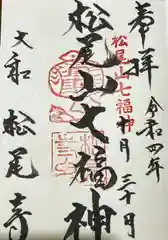 奉拝
令和四年
十月三十日
松尾山七福神
松尾山大福神
大和
松尾寺